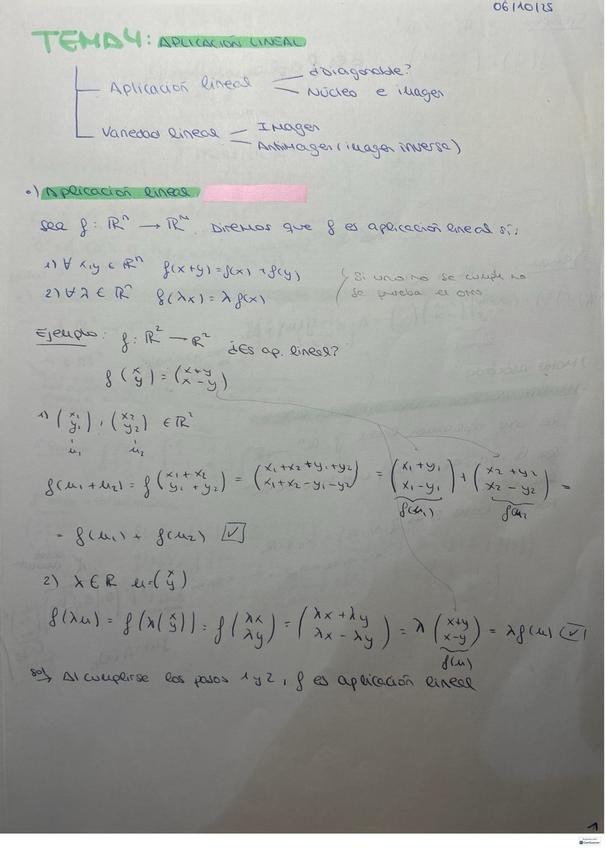 06/10/25
TEMA 4: APLICACIÓN LINEAL
Aplicación lineal — ¿Diagonable?
— Núcleo e imagen
Variedad lineal — Imagen
— Antimagen (imagen inversa)
•) Aplicación lineal
Sea f: ℝⁿ → ℝᵐ. Diremos que f es aplicación lineal si:
1) ∀ x,y ∈ ℝⁿ f(x+y) = f(x) + f(y)
2) ∀ λ ∈ ℝ f(λx) = λ f(x)
Si uno no se cumple no
se prueba el otro
Ejemplo: f: ℝ² → ℝ² ¿Es ap. lineal?
f (x y) = (x+y x-y)
1) (x₁ y₁), (x₂ y₂) ∈ ℝ²
u₁ u₂
f(u₁+u₂) = f (x₁+x₂ y₁+y₂) = (x₁+x₂+y₁+y₂ x₁+x₂-y₁-y₂) = (x₁+y₁ x₁-y₁) + (x₂+y₂ x₂-y₂) =
f(u₁) f(u₂
= f(u₁) + f(u₂) ✓
2) λ ∈ ℝ u=(x y)
f(λu) = f(λ(x y)) = f (λx λy) = (λx+λy λx-λy) = λ (x+y x-y) = λf(u) ✓
f(u)
sol) Al cumplirse los pasos 1 y 2, f es aplicación lineal
1
CamScanner